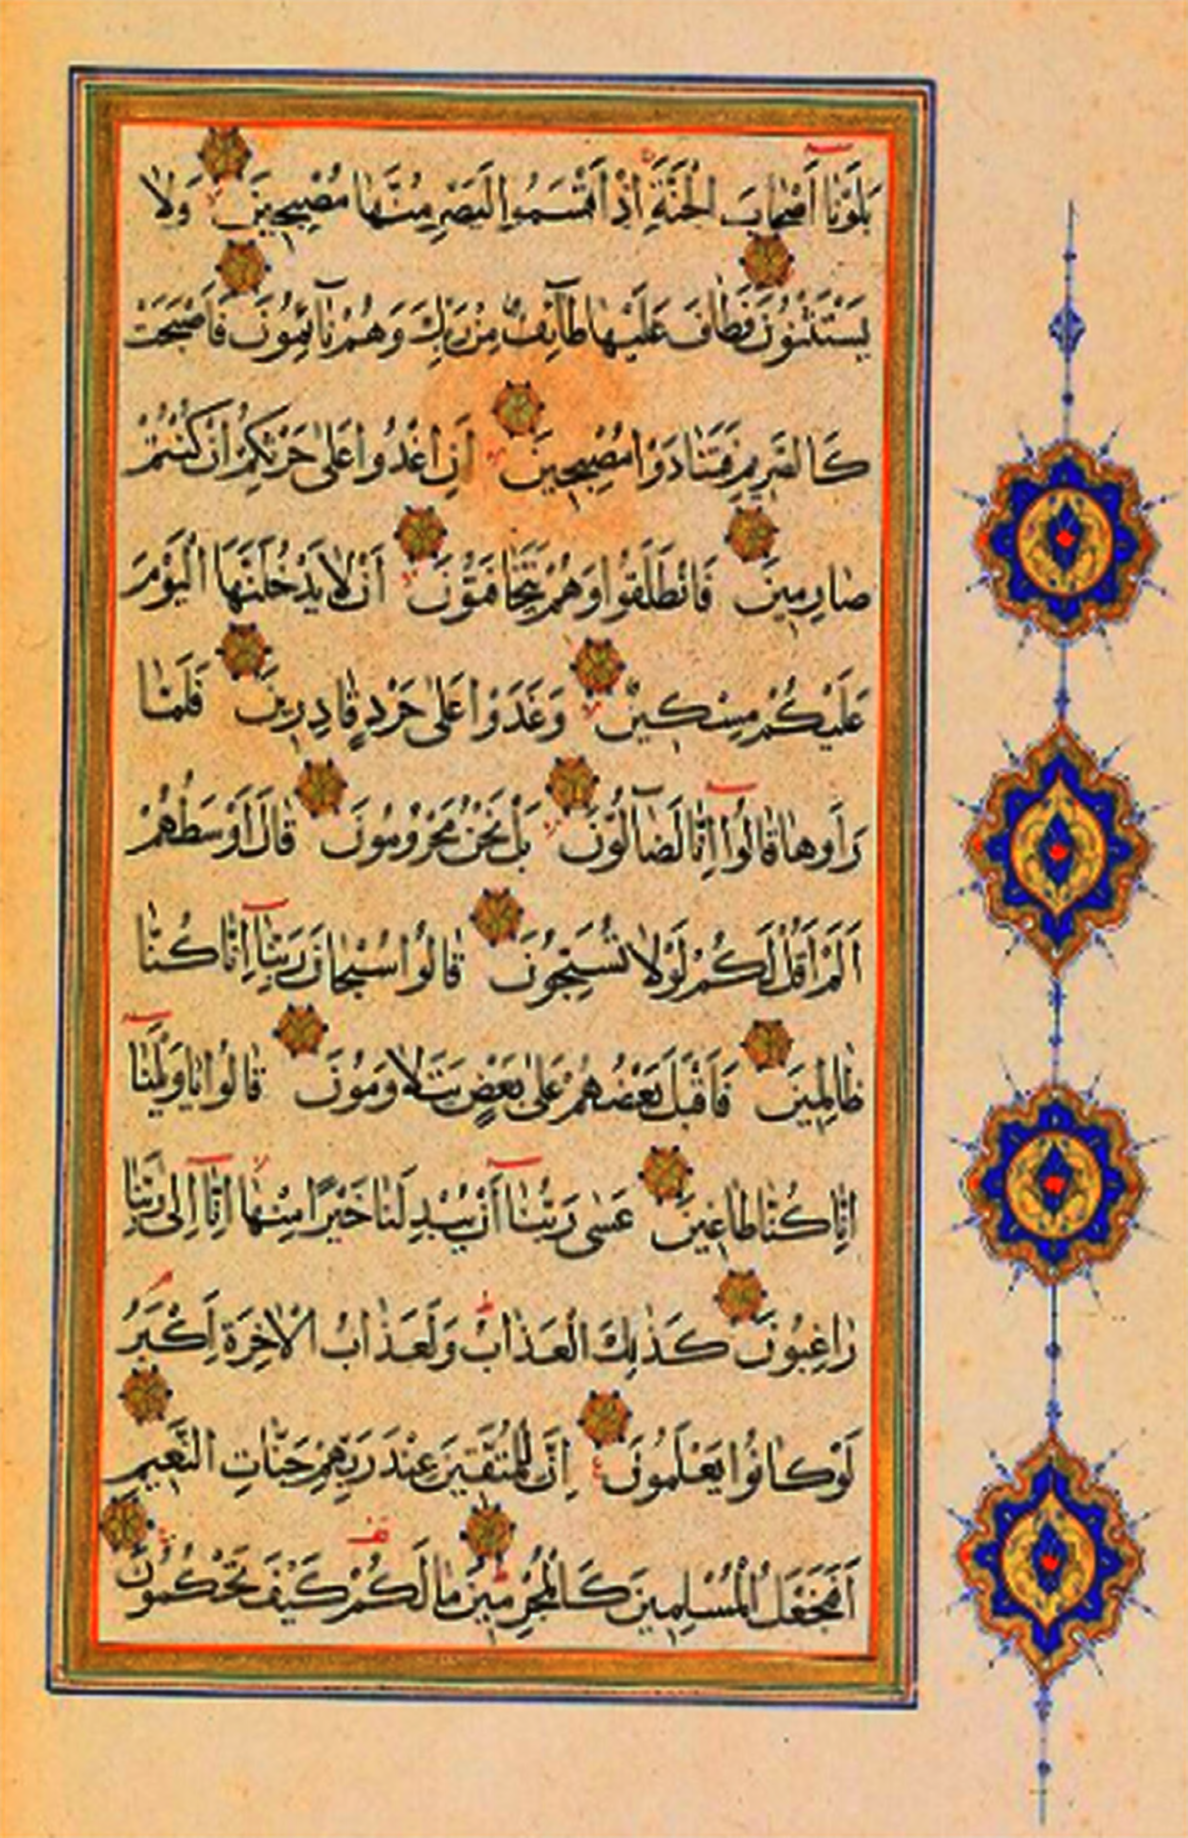 بَلَوْنَا أَصْحَابَ الْجَنَّةِ إِذْ أَقْسَمُوا لَيَصْرِمُنَّهَا مُصْبِحِينَ وَلَا
يَسْتَثْنُونَ فَطَافَ عَلَيْهَا طَآئِفٌ مِنْ رَبِّكَ وَهُمْ نَآئِمُونَ فَأَصْبَحَتْ
كَالصَّرِيمِ فَتَنَادَوْا مُصْبِحِينَ أَنِ اغْدُوا عَلَى حَرْثِكُمْ إِنْ كُنْتُمْ
صَارِمِينَ فَانْطَلَقُوا وَهُمْ يَتَخَافَتُونَ أَنْ لَا يَدْخُلَنَّهَا الْيَوْمَ
عَلَيْكُمْ مِسْكِينٌ وَغَدَوْا عَلَى حَرْدٍ قَادِرِينَ فَلَمَّا
رَأَوْهَا قَالُوا إِنَّا لَضَآلُّونَ بَلْ نَحْنُ مَحْرُومُونَ قَالَ أَوْسَطُهُمْ
أَلَمْ أَقُلْ لَكُمْ لَوْلَا تُسَبِّحُونَ قَالُوا سُبْحَانَ رَبِّنَا إِنَّا كُنَّا
ظَالِمِينَ فَأَقْبَلَ بَعْضُهُمْ عَلَى بَعْضٍ يَتَلَاوَمُونَ قَالُوا يَاوَيْلَنَا
إِنَّا كُنَّا طَاغِينَ عَسَى رَبُّنَا أَنْ يُبْدِلَنَا خَيْرًا مِنْهَا إِنَّا إِلَى رَبِّنَا
رَاغِبُونَ كَذَلِكَ الْعَذَابُ وَلَعَذَابُ الْآخِرَةِ أَكْبَرُ
لَوْ كَانُوا يَعْلَمُونَ إِنَّ لِلْمُتَّقِينَ عِنْدَ رَبِّهِمْ جَنَّاتِ النَّعِيمِ
أَفَنَجْعَلُ الْمُسْلِمِينَ كَالْمُجْرِمِينَ مَا لَكُمْ كَيْفَ تَحْكُمُونَ